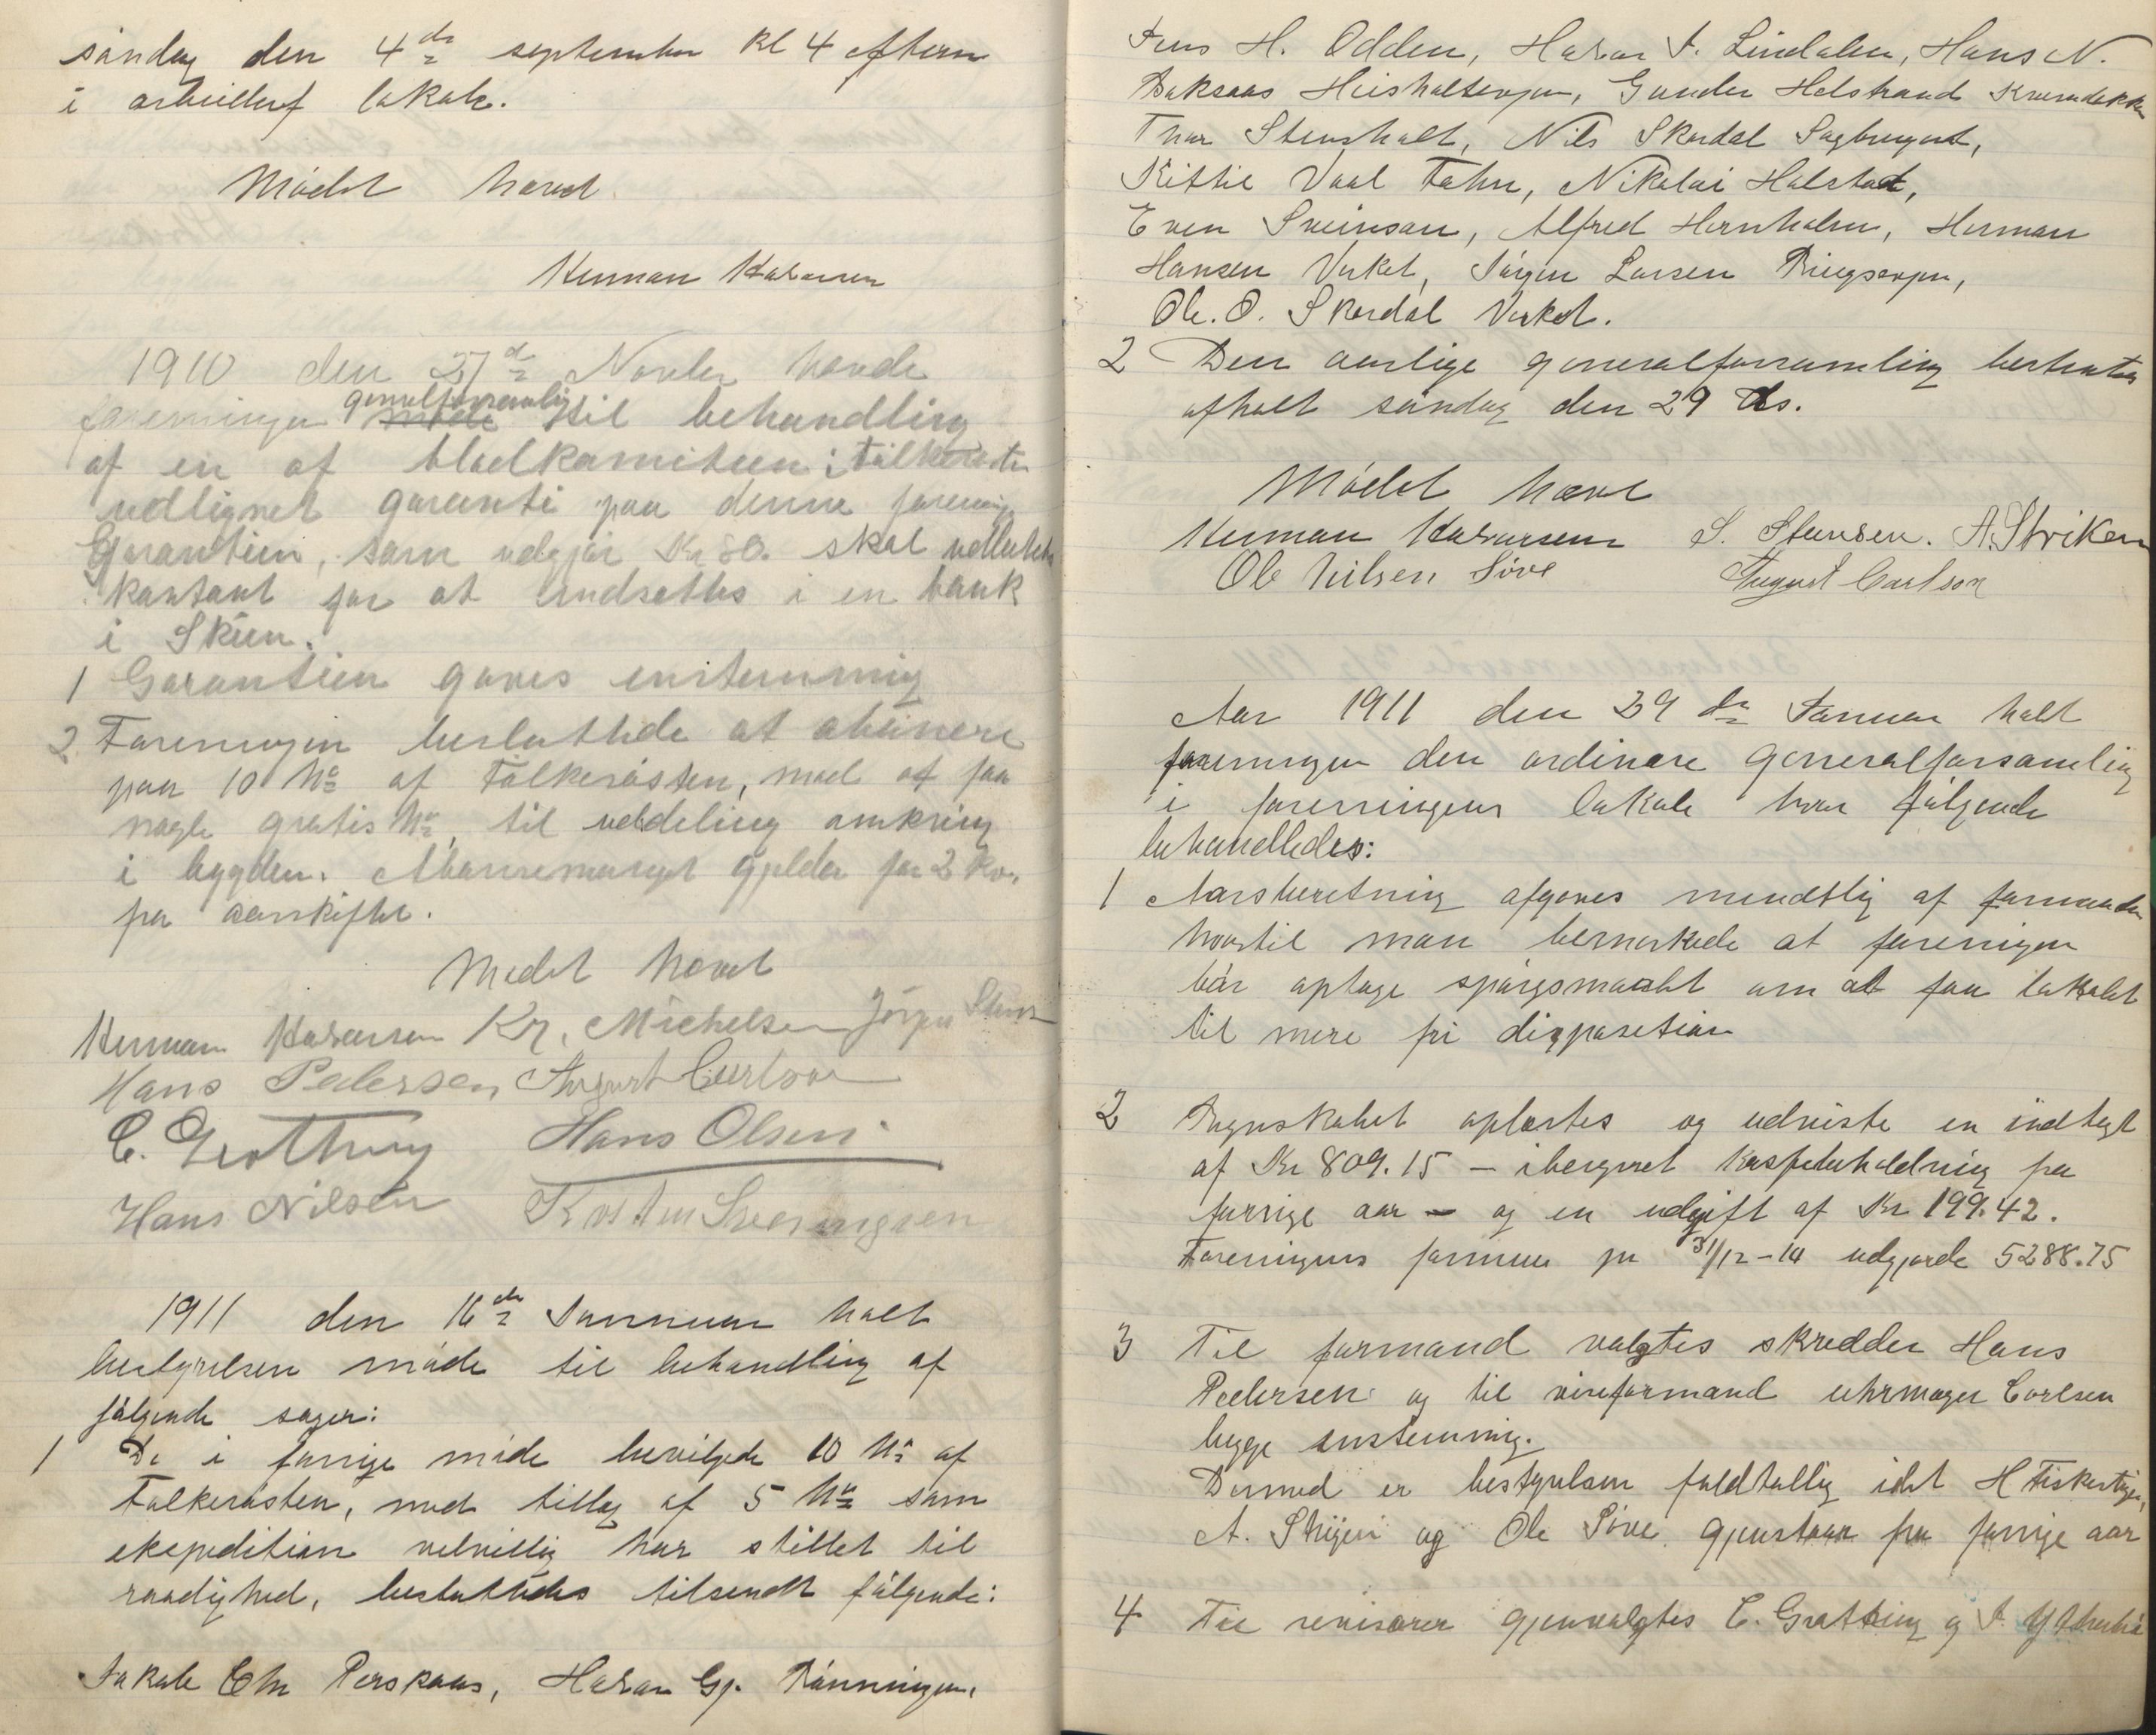 søndag den 4de september kl 4 efterm
i arbeiderf lokale.
Mødet hævet.
Herman Halvorsen
1910 den 27de Novbr havde
foreningen generalforsamling møde til behandling
af en af bladkomiteen i Folkerøsten
udlignet garanti paa denne forening
Garantien, som udgjør Kr 80. skal udbetales
kontant for at indsettes i en bank
i Skien.
1 Garantien gaves enstemmig
2. Foreningen besluttede at abonere
paa 10 No af Folkerøsten, mod at faa
nogle gratis No, til uddeling omkring
i bygden. Abonnemanget gjelder for 2 kv.
fra aarskiftet.
Mødet hævet
Herman Halvorsen Kr. Michelsen Jørgen
Hans Pedersen August Carlson
C. Grotthing Hans Olsen.
Hans Nilsen
1911 den 16de Januar holt
bestyrelsen møde til behandling af
følgende sager:
1 De i forrige møde bevilgede 10 No af
Folkerøsten, med tillæg af 5 No som
ekspedition velvillig har stillet til
raadighed, besluttedes tilsendt følgende:
Jakob Chr Perskaas, Halvor Gj. Rønningen,
Jens H. Odden, Halvor J. Lindalen, Hans N.
Gunder Helstrand
Thor Stensholt, Nils Skardal Sagbruget,
Kittil Vaal Fahn, Nikolai Holstad,
Even Sveinsen, Alfred Hornholm, Herman
Hansen Verket, Jørgen Larsen Ringsevjen,
Ole. O. Skardal Verket.
2 Den aarlige generalforsamling bestemtes
afholt søndag den 29 ds.
Mødet hævet
Herman Halvorsen S. Steensen. A. Striken
Ole Nilsen Søve August Carlson
Aar 1911 den 29de Januar holt
foreningen den ordinære generalforsamling
i foreningens lokale hvor følgende
behandledes:
1 Aarsberetning afgaves mundtlig af formanden
hvortil man bemærkede at foreningen
bør optage spørgsmaalet om at faa lokalet
til mere fri disposition
2 Regnskabet oplæstes og udviste en indtegt
af Kr 809.15 – iberegnet kassebeholdning fra
forrige aar – og en udgift af Kr 199.42.
Foreningens formue pr 31/12-10 udgjorde 5288.75
3 Til formand valgtes skredder Hans
Pedersen og til viseformand uhrmager Carlsen
begge enstemmig.
Dermed er bestyrelsen fuldtallig idet H
A. Stigen og Ole Søve gjenstaar fra forrige aar
4 Til revisorer gjenvalgtes C. Grotthing og